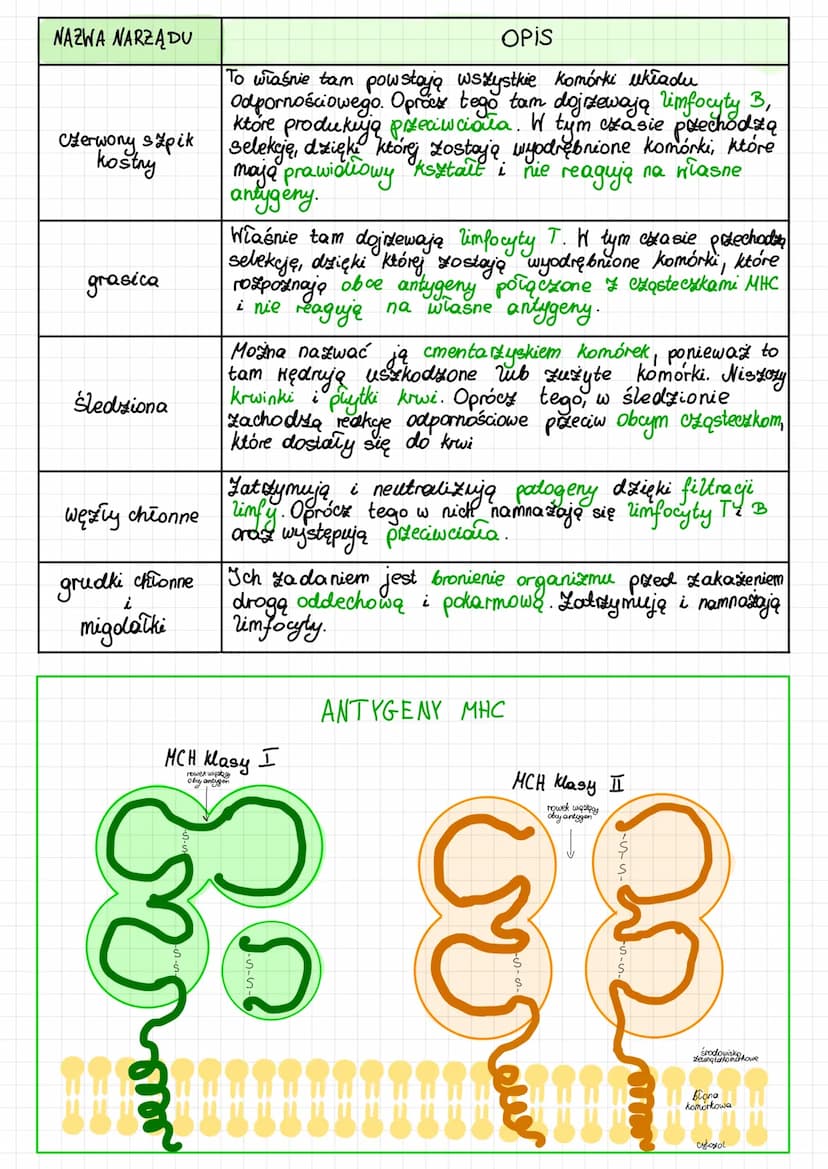 NAZWA NARZĄDU
OPIS
czerwony szpik
kostny
To właśnie tam powstają wszystkie komórki układu
odpornościowego. Oprócz tego tam dojrzewają limfocyty B,
które produkują przeciwciała. W tym czasie przechodzą
selekcję, dzięki której zostają wyodrębnione komórki, które
mają prawidłowy kształt i nie reagują na własne
antygeny.
grasica
Właśnie tam dojrzewają limfocyty T. W tym czasie przechodzą
selekcję, dzięki której zostają wyodrębnione komórki, które
rozpoznają obce antygeny połączone z cząsteczkami MHC
i nie reagują na własne antygeny.
śledziona
Można nazwać ją cmentarzyskiem komórek, ponieważ to
tam wędrują uszkodzone lub zużyte komórki. Niszczy
krwinki i płytki krwi. Oprócz tego, w śledzionie
zachodzą reakcje odpornościowe przeciw obcym cząsteczkom,
które dostały się do krwi
węzły chłonne
Zatrzymują i neutralizują patogeny dzięki filtracji
limfy. Oprócz tego w nich namnażają się limfocyty T i B
oraz występują przeciwciała.
grudki chłonne
i
migdałki
Ich zadaniem jest bronienie organizmu przed zakażeniem
drogą oddechową i pokarmową. Zatrzymują i namnażają
limfocyty.
ANTYGENY MHC
MCH klasy I
rowek wiążący
obcy antygen
MCH klasy II
rowek wiążący
obcy antygen
S-S
S-S
S-S
S-S
S-S
S-S
środowisko
zewnątrzkomórkowe
błona
komórkowa
cytozol